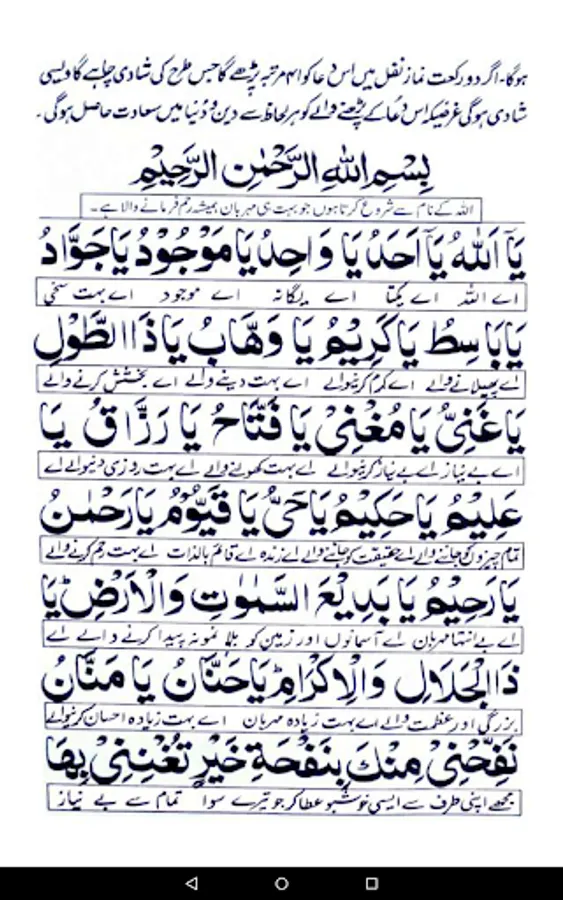 ہوگا۔ اگر دو رکعت نماز نفل میں اس دعا کو ۴۱ مرتبہ پڑھے گا جس طرح کی شادی چاہے گا ویسی
شادی ہوگی غرضیکہ اس دعا کے پڑھنے والے کو ہر لحاظ سے دین و دنیا میں سعادت حاصل ہوگی۔
بِسْمِ اللهِ الرَّحْمٰنِ الرَّحِيْمِ
اللہ کے نام سے شروع کرتا ہوں جو بہت ہی مہربان ہمیشہ رحم فرمانے والا ہے۔
يَآ اَللهُ يَآ اَحَدُ يَا وَاحِدُ يَا مَوْجُوْدُ يَا جَوَّادُ
اے اللہ اے یکتا اے یگانہ اے موجود اے بہت سخی
يَا بَاسِطُ يَا كَرِيْمُ يَا وَهَّابُ يَا ذَا الطَّوْلِ
اے پھیلانے والے اے کرم کرنیوالے اے بہت دینے والے اے بخشش کرنے والے
يَا غَنِيُّ يَا مُغْنِيْ يَا فَتَّاحُ يَا رَزَّاقُ يَا
اے بے نیاز اے بے نیاز کرنیوالے اے بہت کھولنے والے اے بہت روزی دینوالے اے
عَلِيْمُ يَا حَكِيْمُ يَا حَيُّ يَا قَيُّوْمُ يَا رَحْمٰنُ
تمام چیزوں کو جاننے والے اے حقیقت کو جاننے والے اے زندہ اے قائم بالذات اے بہت رحم کرنے والے
يَا رَحِيْمُ يَا بَدِيْعَ السَّمٰوٰتِ وَالْاَرْضِ يَا
اے بے انتہا مہربان اے آسمانوں اور زمین کو بلا نمونہ پیدا کرنے والے اے
ذَا الْجَلَالِ وَالْاِكْرَامِ يَا حَنَّانُ يَا مَنَّانُ
بزرگی اور عظمت والے اے بہت زیادہ مہربان اے بہت زیادہ احسان کرنیوالے
نَفِّحْنِيْ مِنْكَ بِنَفْحَةِ خَيْرٍ تُغْنِنِيْ بِهَا
مجھے اپنی طرف سے ایسی خوشبو عطا کر جو تیرے سوا تمام سے بے نیاز